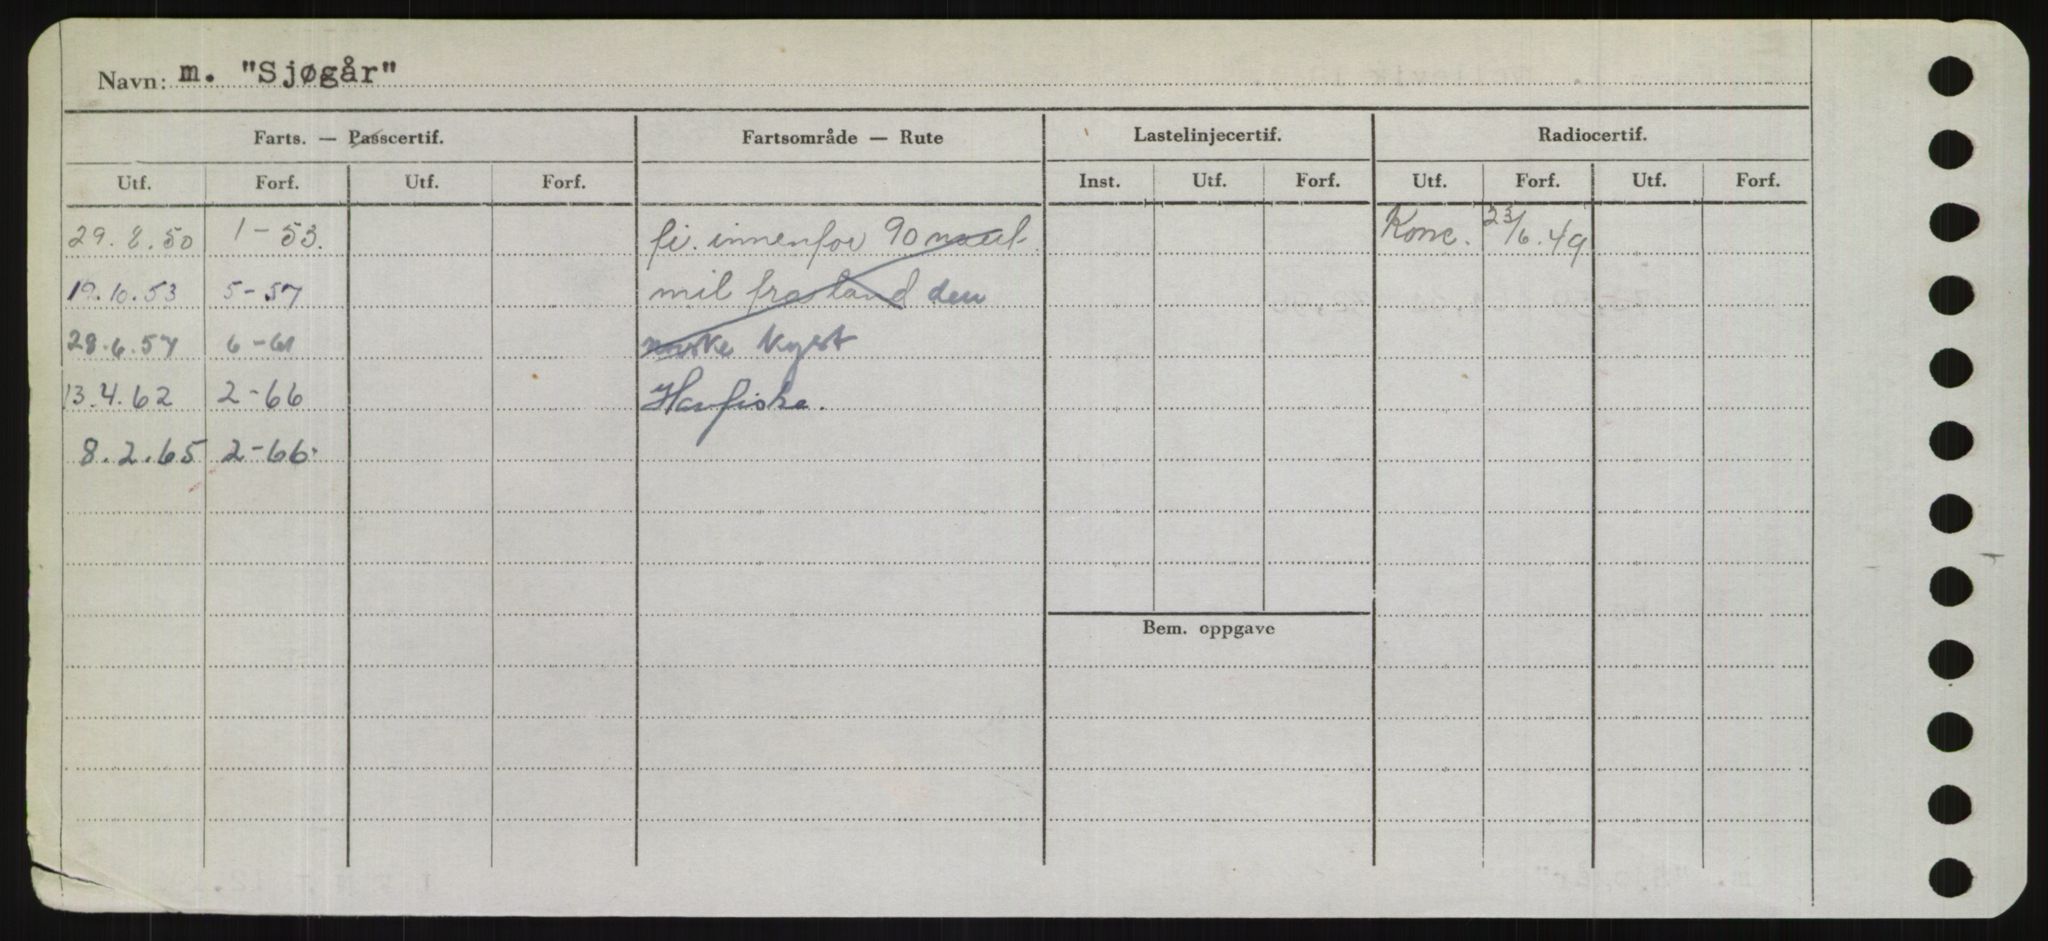 Navn: m. "Sjøgår"
Farts. — Passcertif. Fartsområde — Rute Lastelinjecertif. Radiocertif.
Utf. Forf. Utf. Forf. Inst. Utf. Forf. Utf. Forf. Utf. Forf.
29.8.50 1-53. fi. innenfor 90 naut. Konc. 23/6.49
19.10.53 5-57 mil fra land den
28.6.57 6-61 norske kyst
13.4.62 2-66 Havfiske.
8.2.65 2-66.
Bem. oppgave